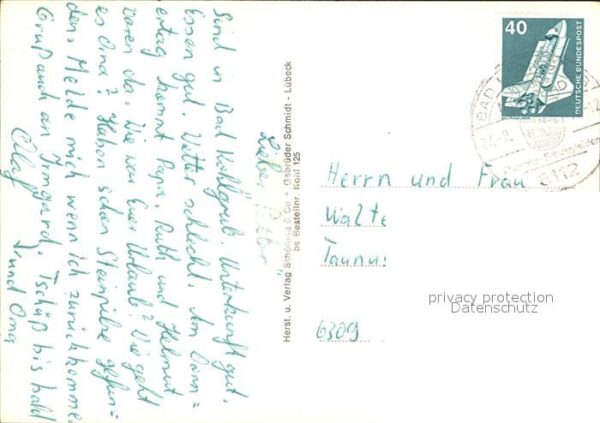 Sind in Bad Kohlgrub. Unterkunft gut.
Essen gut. Wetter schlecht. Am Donn=
erstag kommt Papa. Ruth und Helmut
waren da. Wie war Euer Urlaub? Wie geht
es Oma? Haben schon Steinpilze gefun=
den. Melde mich wenn ich zurückkomme.
Gruß auch an Irmgard. Tschüß bis bald
Olaf
und Oma
Liebe
Herst. u. Verlag Schöning & Co + Gebrüder Schmidt - Lübeck
bs Bestellnr. Kohl 125
40
DEUTSCHE BUNDESPOST
BAD
8112
Herrn und Frau
Walte
Taunus
6309
privacy protection
Datenschutz